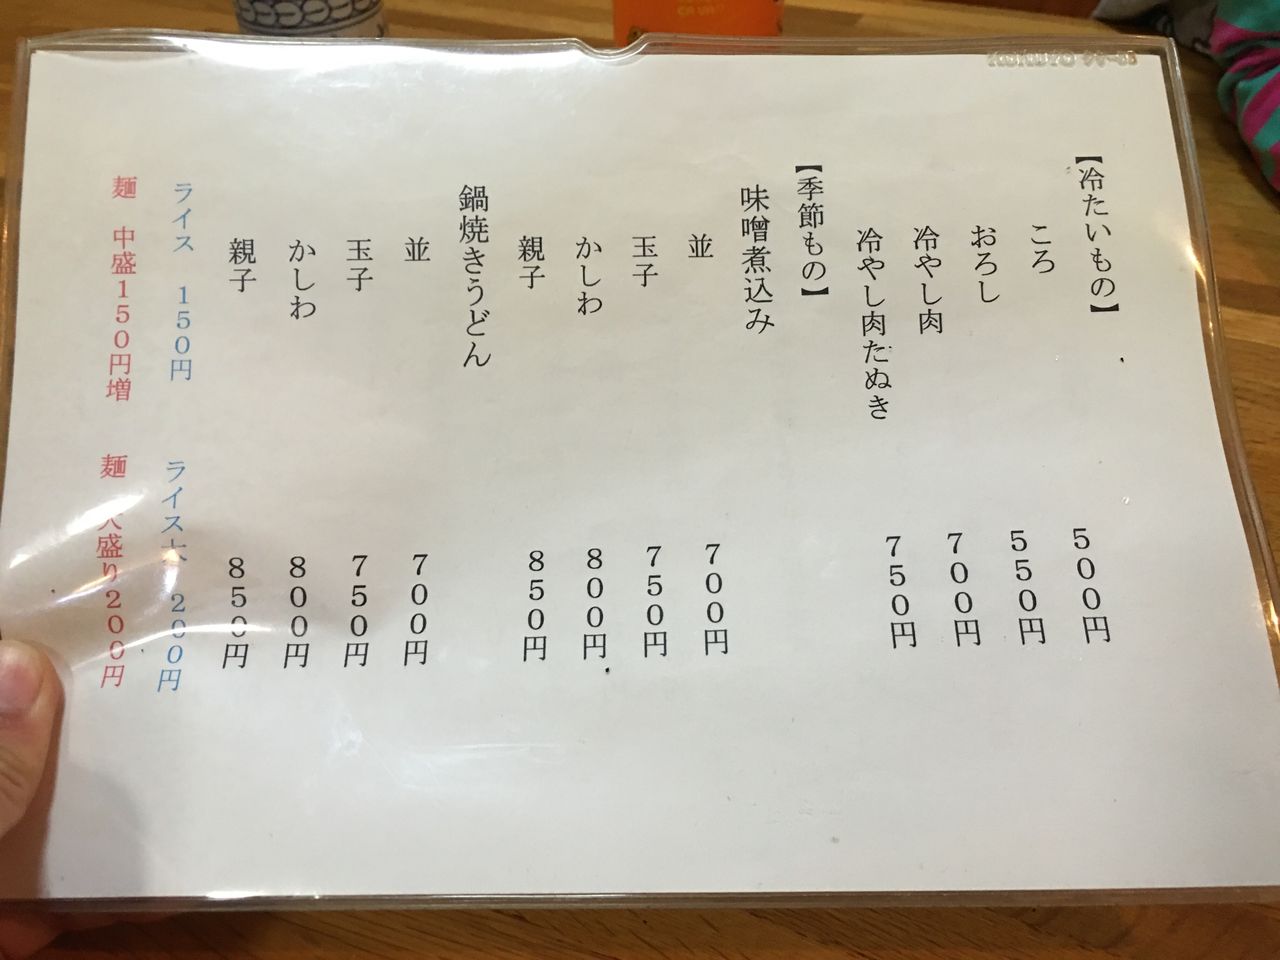 【冷たいもの】
ころ 500円
おろし 550円
冷やし肉 700円
冷やし肉たぬき 750円
【季節もの】
味噌煮込み
並 700円
玉子 750円
かしわ 800円
親子 850円
鍋焼きうどん
並 700円
玉子 750円
かしわ 800円
親子 850円
ライス 150円 ライス大 200円
麺 中盛150円増 麺 大盛り200円